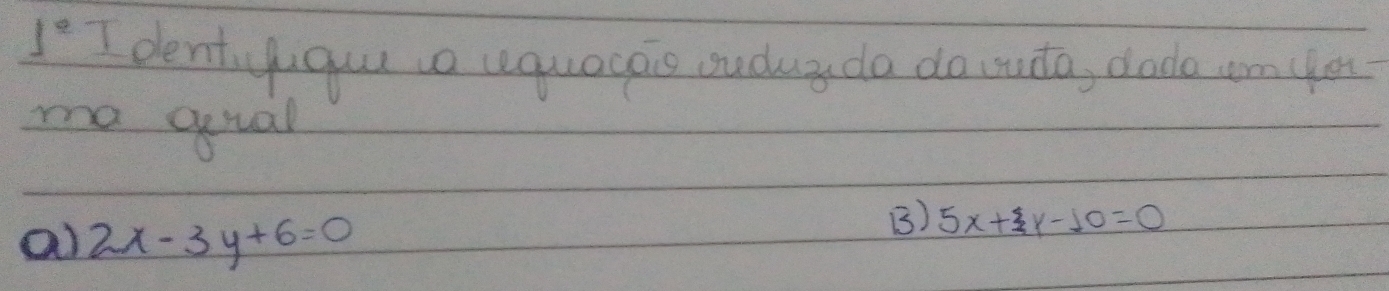 1º Identifique a equação reduzida da reta, dada em for-
ma geral
a) 2x-3y+6=0 B) 5x+ y-10=0